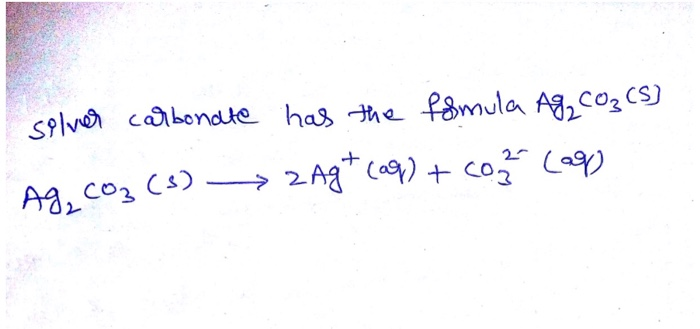 silver carbonate has the formula Ag₂CO₃(s)
Ag₂CO₃(s) ⟶ 2Ag⁺(aq) + CO₃²⁻(aq)